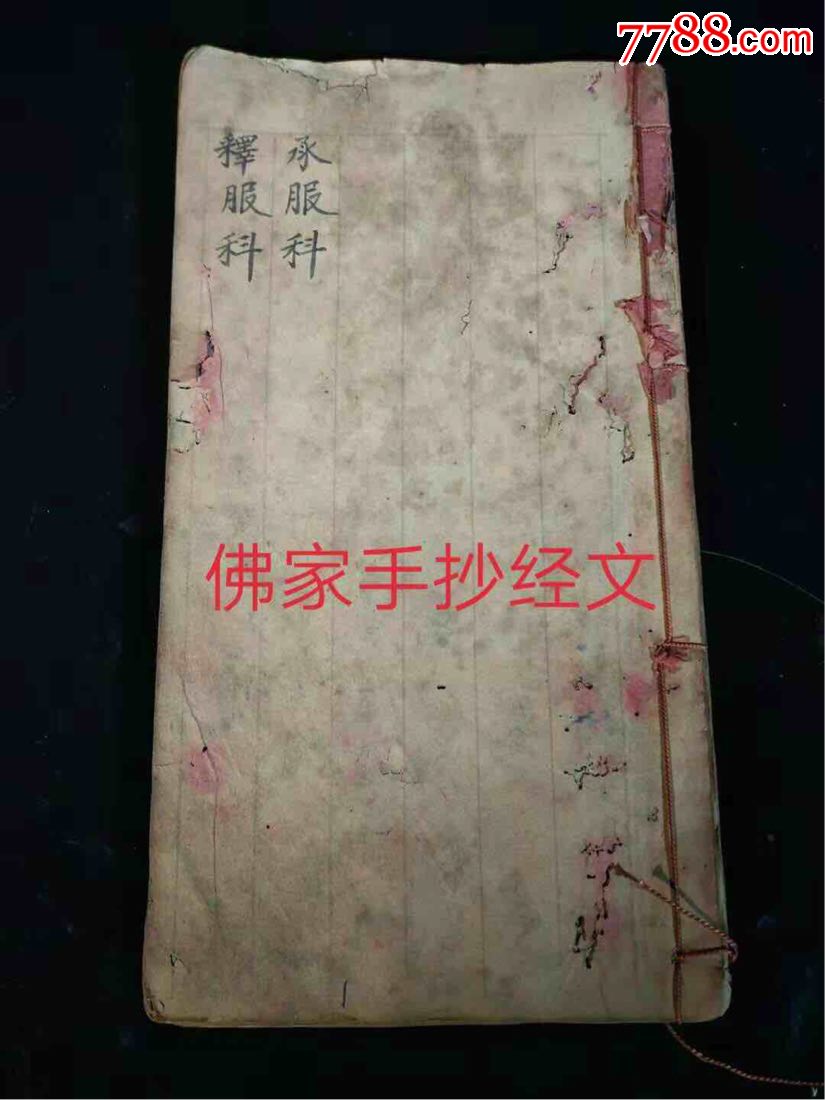 7788.com
承服科
釋服科
佛家手抄经文